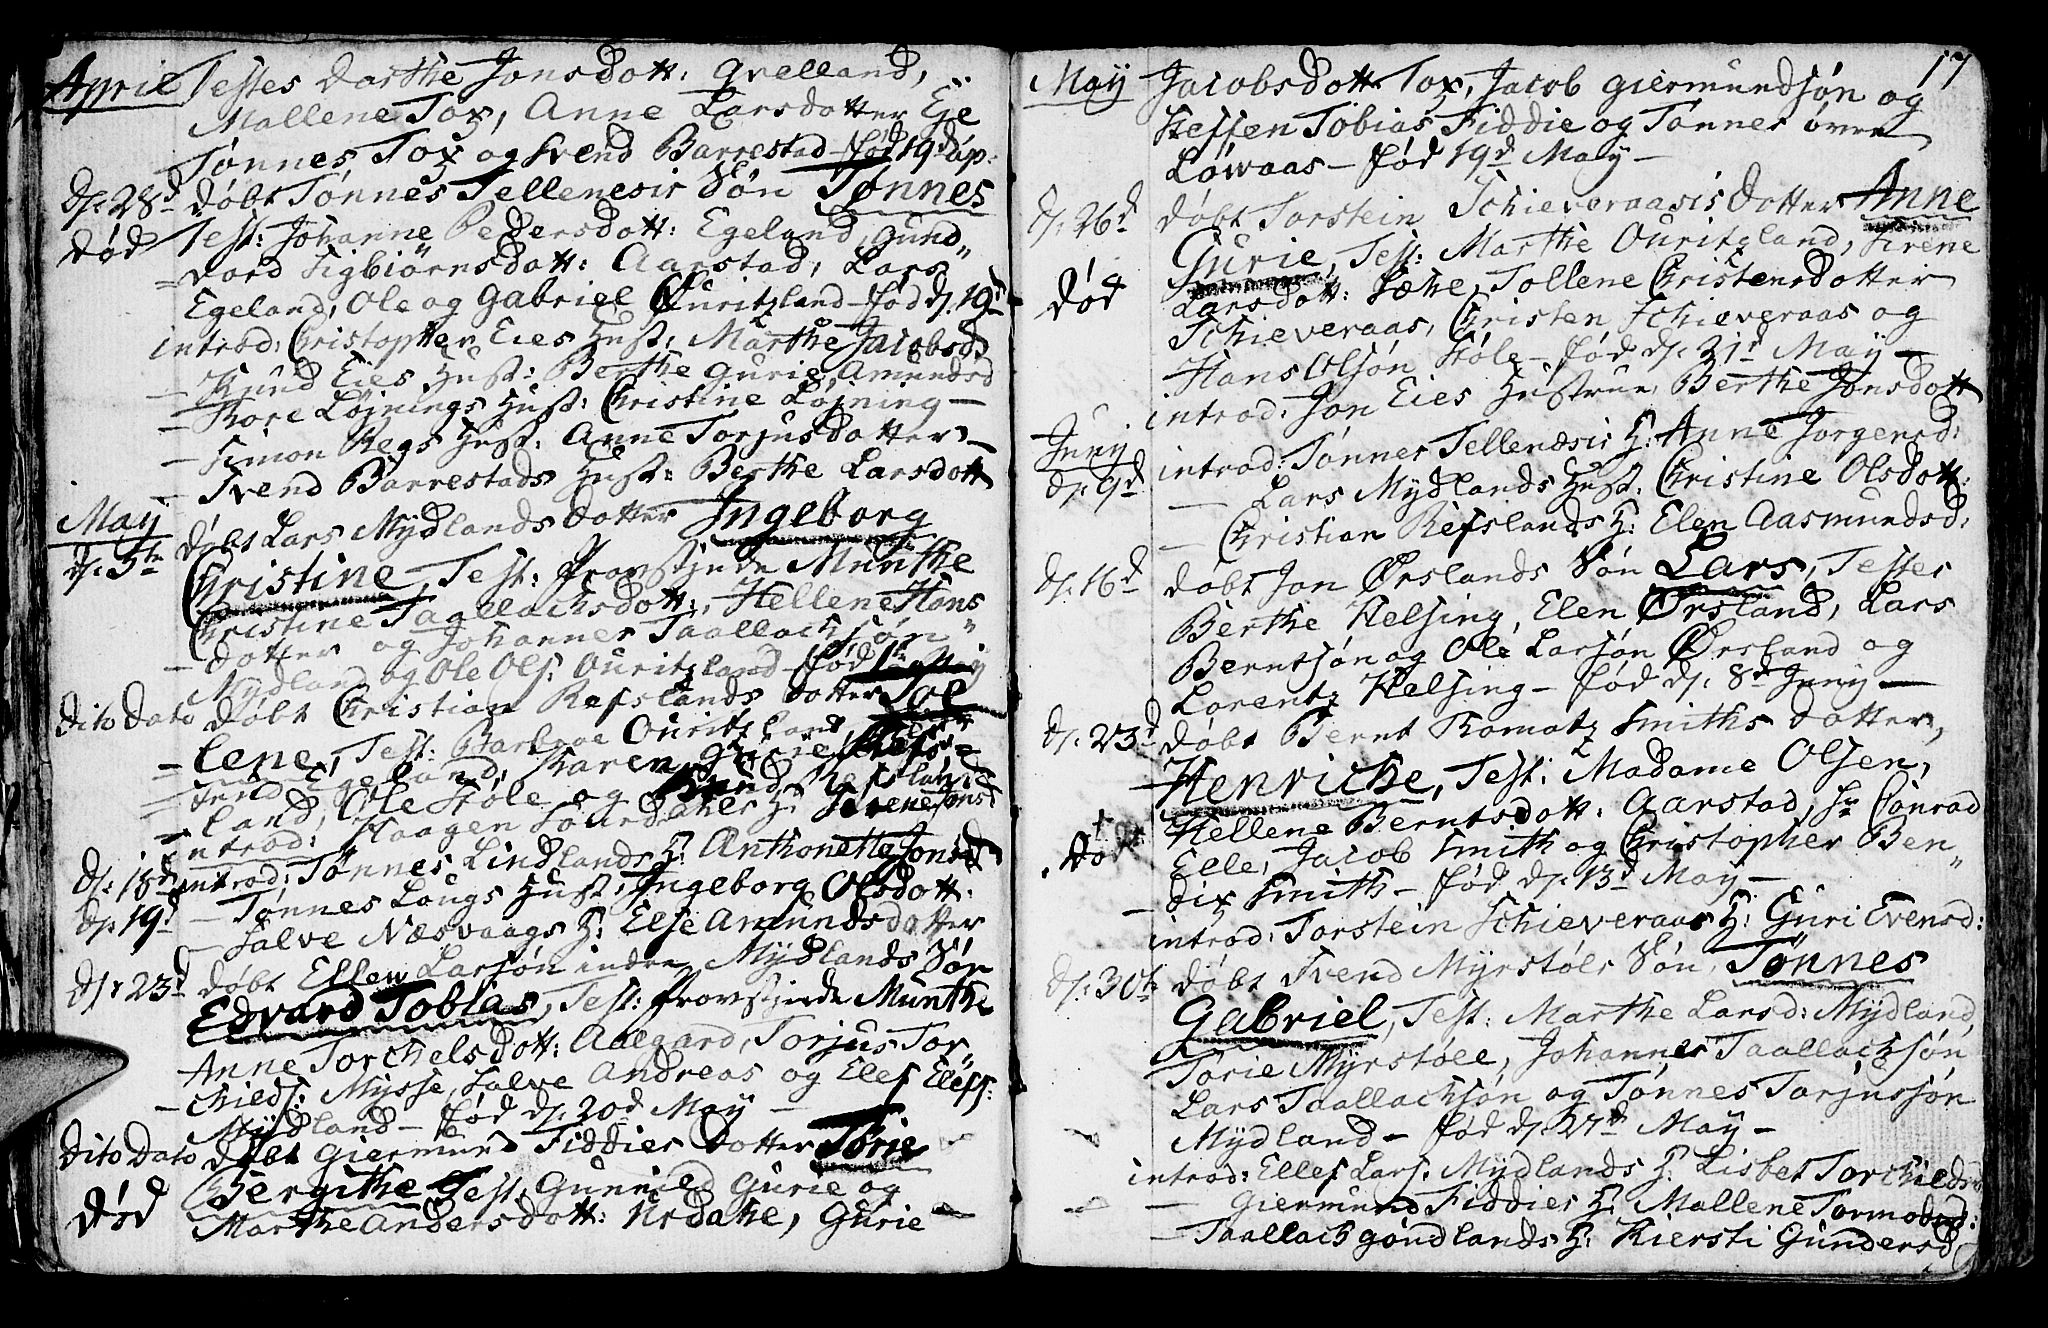 April Testes Dorthe Jonsdott: Qvelland,
Mallene Tox, Anne Larsdotter Eje
Tønnes Tox og Svend Barrestad – fød 19d ap:
d: 28d døbt Tønnes Tellenesis Søn Tønnes
død Test: Johanne Pedersdott: Egeland, Gund„
=vord Sigbiørnsdott: Aarstad, Lars
Egeland, Ole og Gabriel Ouritzland – fød d: 19d
introd: Christopher Eies Hust: Marthe Jacobsd
– Knud Eies Hust: Berthe Gurie Amundsd
– Tore Løjnings Hust: Christine Løjning –
– Simon Regs Hust: Anne Torjusdotter –
– Svend Barrestads Hust: Berthe Larsdott
May
d: 5te døbt Lars Mydlands dotter Ingeborg
Christine, Test: Provstjnde Munthe
Christine Taallachsdott:, Hellene Hans„
– dotter og Johannes Taallachsøn
Mydland og Ole Ols: Ouritzland – fød
Dito Dato døbt Christian Refslands dotter Tol
=lene, Test: Barbroe Ouritzland,
Egeland, Karen Gurie Refs=
=land, Ole Støle og Knud Refsland
introd: Haagen H: Sirene Jonsd
d: 18d introd: Tønnes Lindlands H: Anthonette Jonsd
d: 19d – Tønnes Laugs Hust: Ingeborg Olsdott:
– Salve Næsvaags H: Else Amundsdotter
d: 23d døbt Ellew Larsøn indre Mydlands Søn
Edvard Tobias, Test: Provstjnde Munthe
Anne Torchelsdott: Aalgard, Torjus Tor„
– chields: Mysse, Salve Andreas og Elef Elefs:
Mydland – fød d: 20d May –
Dito Dato døbt Giermund Fiddies Dotter Torie
Bergithe Test: Gunnild Gurie og
død Marthe Andersdott: Urdahe, Gurie –
17
May Jacobsdott Tox, Jacob Giermundsøn og
Steffen Tobias Fiddie og Tønnes øvre
Løwaas – fød 19d May –
d: 26d døbt Torstein Schieveraasis Dotter Anne
Gurie, Test: Marthe Ouritzland, Sirene
død Larsdott: Tollene Christensdotter
Schieveraas, Christen Schieveraas og
Hans Olsøn Støle – fød d: 21d May –
introd: Jon Eies Hustrue Berthe Jonsdott
Junij
d: 9d introd: Tønnes Tellenesis H: Anne Jorgensd:
– Lars Mydlands Hust: Christine Olsdott:
– Christian Refslands H: Elen Aasmundsd:
d: 16d døbt Jon Ørslands Søn Lars, Testes
Berthe Helsing, Elen Ørsland, Lars
Berntsøn og Ole Larsøn Ørsland og
Lorentz Helsing – fød d: 8d Junij –
d: 23d døbt Bernt Romatz Smiths dotter,
Henriche, Test: Madame Olsen,
død Hellene Berntsdott: Aarstad, Sr Conrad
Elle, Jacob Smith og Christopher Ben„
– dix Smith – fød d: 13d May –
introd: Torstein Schieveraas H: Guri Evensd:
d: 30te døbt Svend Myrstøls Søn Tønnes
Gabriel, Test: Marthe Larsd: Mydland
Torie Myrstøle, Johannes Taallachsøn
Lars Taallachsøn og Tønnes Torjussøn
Mydland – fød d: 27d May –
introd: Ellef Lars: Mydlands H: Lisbet Torchieldsd
– Giermund Fiddies H: Mallene Tormodsd:
– Taallach Gøndlands H: Kiersti Gundersd